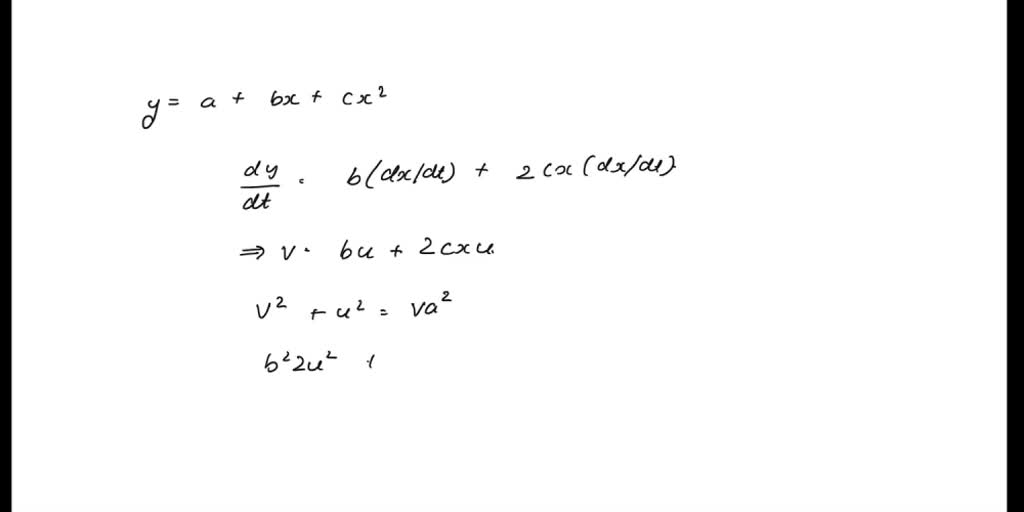 y = a + bx + cx²
dy/dt . b(dx/dt) + 2cx(dx/dt)
⇒ v . bu + 2cxu
v² + u² = va²
b²2u² +